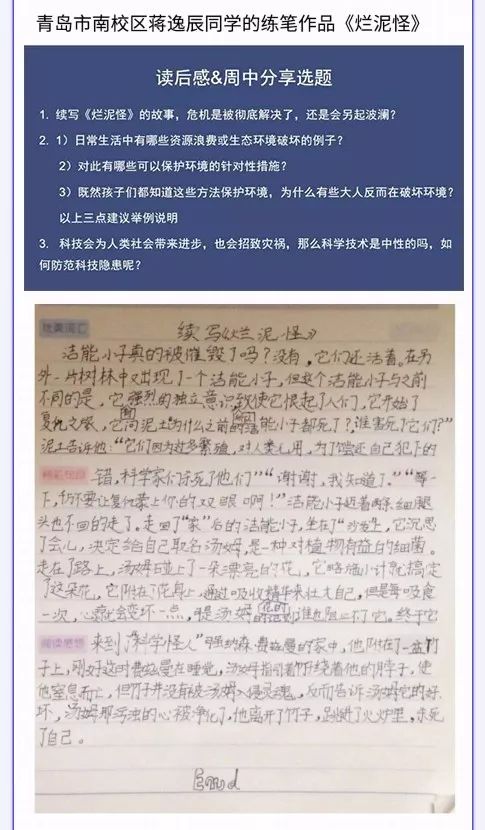 青岛市南校区蒋逸辰同学的练笔作品《烂泥怪》
读后感&周中分享选题
1. 续写《烂泥怪》的故事，危机是被彻底解决了，还是会另起波澜？
2. 1）日常生活中有哪些资源浪费或生态环境破坏的例子？
2）对此有哪些可以保护环境的针对性措施？
3）既然孩子们都知道这些方法保护环境，为什么有些大人反而在破坏环境？
以上三点建议举例说明
3. 科技会为人类社会带来进步，也会招致灾祸，那么科学技术是中性的吗，如
何防范科技隐患呢？
续写《烂泥怪》
洁能小子真的被催毁了吗？没有，它们还活着。在另
外一片树林中又出现了一个洁能小子，但这个洁能小子与之前
不同的是，它强烈的独立意识致使它恨起了人们，它开始了
复仇之旅，它问泥土为什么之前的洁能小子都死了？谁害死了它们？”
泥土告诉他：“它们因为过多繁殖，对人类无用，为了偿还自己犯下的
精彩句段
错，科学家们杀死了他们”“谢谢，我知道了。”“等一
下，千万不要让复仇蒙上你的双眼啊！”洁能小子迈着两条细腿
头也不回的走了。走回了“家”后的洁能小子，坐在了“沙发”上，它沉思
了会儿，决定给自己取名汤姆，是一种对植物有益的细菌。
走在了路上，汤姆碰上了一朵漂亮的花，它略施小计就搞定
了这朵花，它附在了花身上，通过吸收精华来壮大自己，但是每吸食
一次，心就会变坏一点，可是汤姆谁也阻止不了它。终于它
阅读感想
来到了“科学怪人”强纳森·费兹曼的家中，他附在了一盆竹
子上，刚好这时费兹曼在睡觉，汤姆指引着竹子绕着他的脖子，使
他窒息而亡，但竹子并没有被汤姆入侵灵魂，反而告诉汤姆它的好
坏，汤姆那污浊的心被净化了，他离开了竹子，跳进了火炉里，杀死
了自己。
End